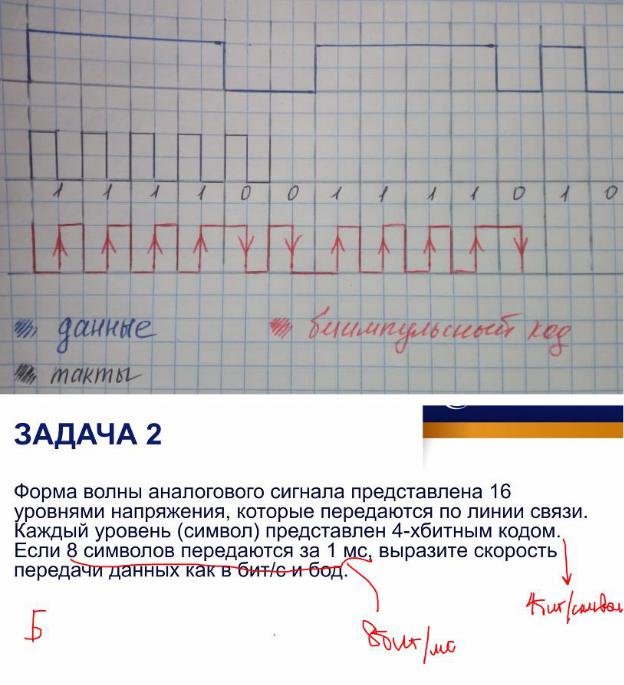 1 1 1 1 0 0 1 1 1 1 0 1 0
данные
биимпульсный код
такты
ЗАДАЧА 2
Форма волны аналогового сигнала представлена 16
уровнями напряжения, которые передаются по линии связи.
Каждый уровень (символ) представлен 4-хбитным кодом.
Если 8 символов передаются за 1 мс, выразите скорость
передачи данных как в бит/с и бод.
4бит/символ
Б
8бит/мс